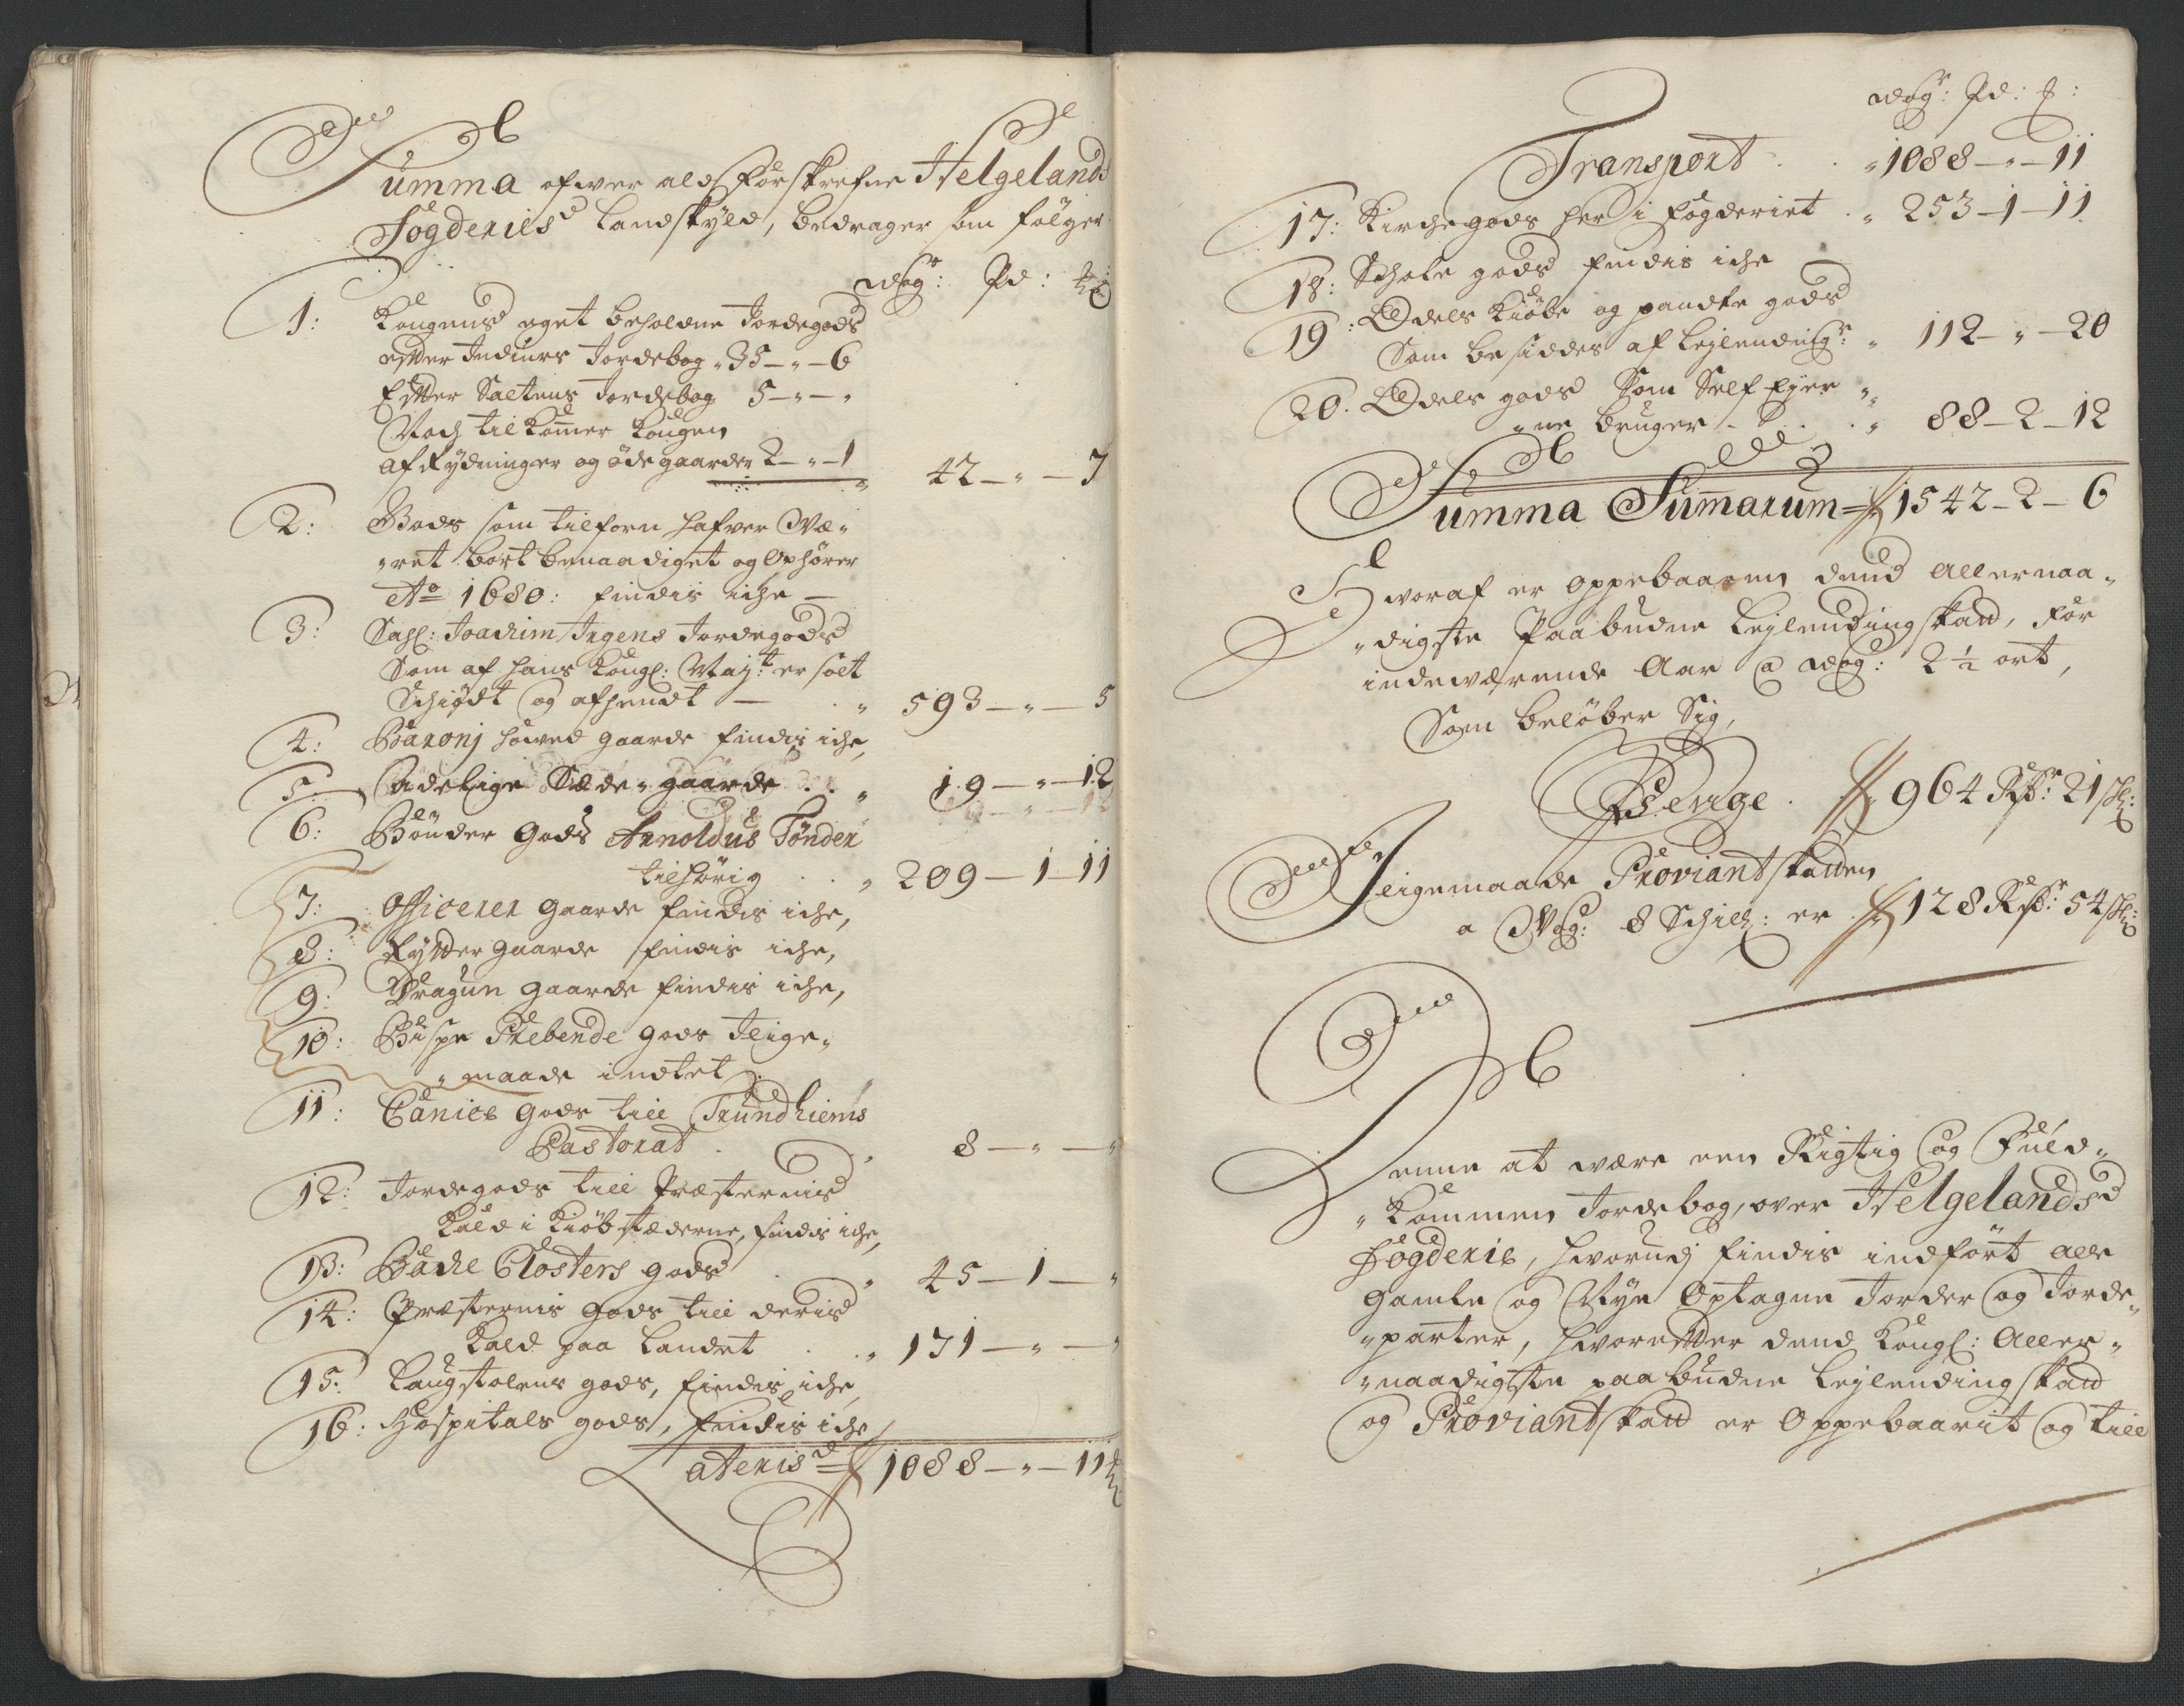 Summa ofwer ald forskrefne Helgelands
Fogderies Landskyld, bedrager som følger
wog: Pd: ℔:
1: Kongens eget beholdne Jordegods
efter Indiurs Jordebog " 35 — " — 6
Efter Saltens Jordebog 5 — " — "
Noch tilkommer Kongen
af Rydninger og øde gaarder 2 — " — 1 " 42 — " — 7
2: Gods som tilforn hafver Wæ„
„ret bort benaadiget og Ophører
Ao 1680: findis iche —
3: Sahl: Joachim Irgens Jordegods
Som af hans Kongl: Maj:t er solt
Schiødt og afhendt — " 593 — " — 5
4: Baronj howed gaarde findis iche,
5: Adelige Sæde„gaarde . . " 19 — " — 12
6: Bønder Gods Arnoldus Tønder
tilhørig . . " 209 — 1 — 11
7: Officerer gaarde findis iche,
8: Rytter gaarde findis iche,
9: Dragun gaarde findis iche,
10: Bispe Prebende gods Jlige„
„maade indtet
11: Canicke gods till Trundhiems
Pastorat . " 8 — " — "
12: Jordegods till Præsternis
Kald i Kiøbstæderne, findis iche,
13: Bache Closters gods " 45 — 1 — "
14: Præsternis gods till deris
Kald paa Landet . . " 171 — " — "
15: Laugstolens gods, findis iche,
16: Hospitals gods, findis iche
Lateris = 1088 — " — 11 ℔
wog: Pd: ℔:
Transport . . " 1088 — " — 11
17: Kirchegods her i fogderiet . " 253 — 1 — 11
18: Schole gods findis iche
19: Odels Kiøbe og pandte gods
Som besiddes af Leylending: " 112 — " — 20
20. Odels gods Som Self Eyer „
„ne bruger . . . " 88 — 2 — 12
Summa Summarum = 1542 — 2 — 6
Hvoraf er oppebaaren dend Allernaa„
„digste Paabudne Leylending skatt, for
indewærende Aar @ wog: 2½ ort,
Som beløber Sig,
Penge . 964 Rdr: 21 ß:
Jligemaade Proviantskatten
a Wog: 8 Schill: er . 128 Rdr: 54 ß:
Denne at være een Rigtig og Fuld„
„kommen Jordebog, over Helgelands
Fogderie, hvorudj findis indført alle
gamle og Nye Optagne Jorder og Jorde„
„parter, hvorefter dend Kongl: Aller„
„naadigste paabudne Leylending skatt
og Proviantskatt er Oppebaarit og till